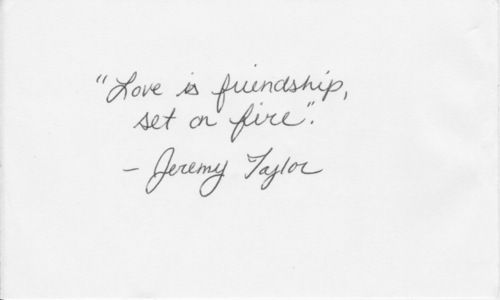 "Love is friendship,
set on fire".
- Jeremy Taylor